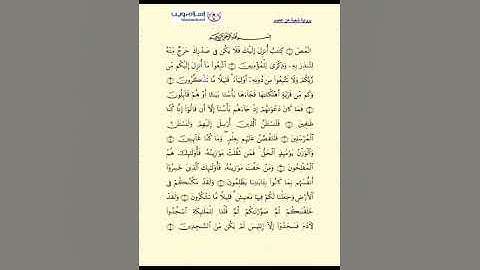 برواية شعبة عن عاصم
إسلام ويب
بِسْمِ اللَّهِ الرَّحْمَٰنِ الرَّحِيمِ
الٓمٓصٓ ۝ كِتَٰبٌ أُنزِلَ إِلَيْكَ فَلَا يَكُن فِى صَدْرِكَ حَرَجٌ مِّنْهُ
لِتُنذِرَ بِهِۦ وَذِكْرَىٰ لِلْمُؤْمِنِينَ ۝ ٱتَّبِعُوا۟ مَآ أُنزِلَ إِلَيْكُم مِّن
رَّبِّكُمْ وَلَا تَتَّبِعُوا۟ مِن دُونِهِۦٓ أَوْلِيَآءَ ۗ قَلِيلًا مَّا تَذَّكَّرُونَ ۝
وَكَم مِّن قَرْيَةٍ أَهْلَكْنَٰهَا فَجَآءَهَا بَأْسُنَا بَيَٰتًا أَوْ هُمْ قَآئِلُونَ
۝ فَمَا كَانَ دَعْوَىٰهُمْ إِذْ جَآءَهُم بَأْسُنَآ إِلَّآ أَن قَالُوٓا۟ إِنَّا كُنَّا
ظَٰلِمِينَ ۝ فَلَنَسْـَٔلَنَّ ٱلَّذِينَ أُرْسِلَ إِلَيْهِمْ وَلَنَسْـَٔلَنَّ
ٱلْمُرْسَلِينَ ۝ فَلَنَقُصَّنَّ عَلَيْهِم بِعِلْمٍ ۖ وَمَا كُنَّا غَآئِبِينَ ۝
وَٱلْوَزْنُ يَوْمَئِذٍ ٱلْحَقُّ ۚ فَمَن ثَقُلَتْ مَوَٰزِينُهُۥ فَأُو۟لَٰٓئِكَ هُمُ
ٱلْمُفْلِحُونَ ۝ وَمَنْ خَفَّتْ مَوَٰزِينُهُۥ فَأُو۟لَٰٓئِكَ ٱلَّذِينَ خَسِرُوٓا۟
أَنفُسَهُم بِمَا كَانُوا۟ بِـَٔايَٰتِنَا يَظْلِمُونَ ۝ وَلَقَدْ مَكَّنَّٰكُمْ فِى
ٱلْأَرْضِ وَجَعَلْنَا لَكُمْ فِيهَا مَعَٰيِشَ ۗ قَلِيلًا مَّا تَشْكُرُونَ ۝ وَلَقَدْ
خَلَقْنَٰكُمْ ثُمَّ صَوَّرْنَٰكُمْ ثُمَّ قُلْنَا لِلْمَلَٰٓئِكَةِ ٱسْجُدُوا۟
لِـَٔادَمَ فَسَجَدُوٓا۟ إِلَّآ إِبْلِيسَ لَمْ يَكُن مِّنَ ٱلسَّٰجِدِينَ ۝